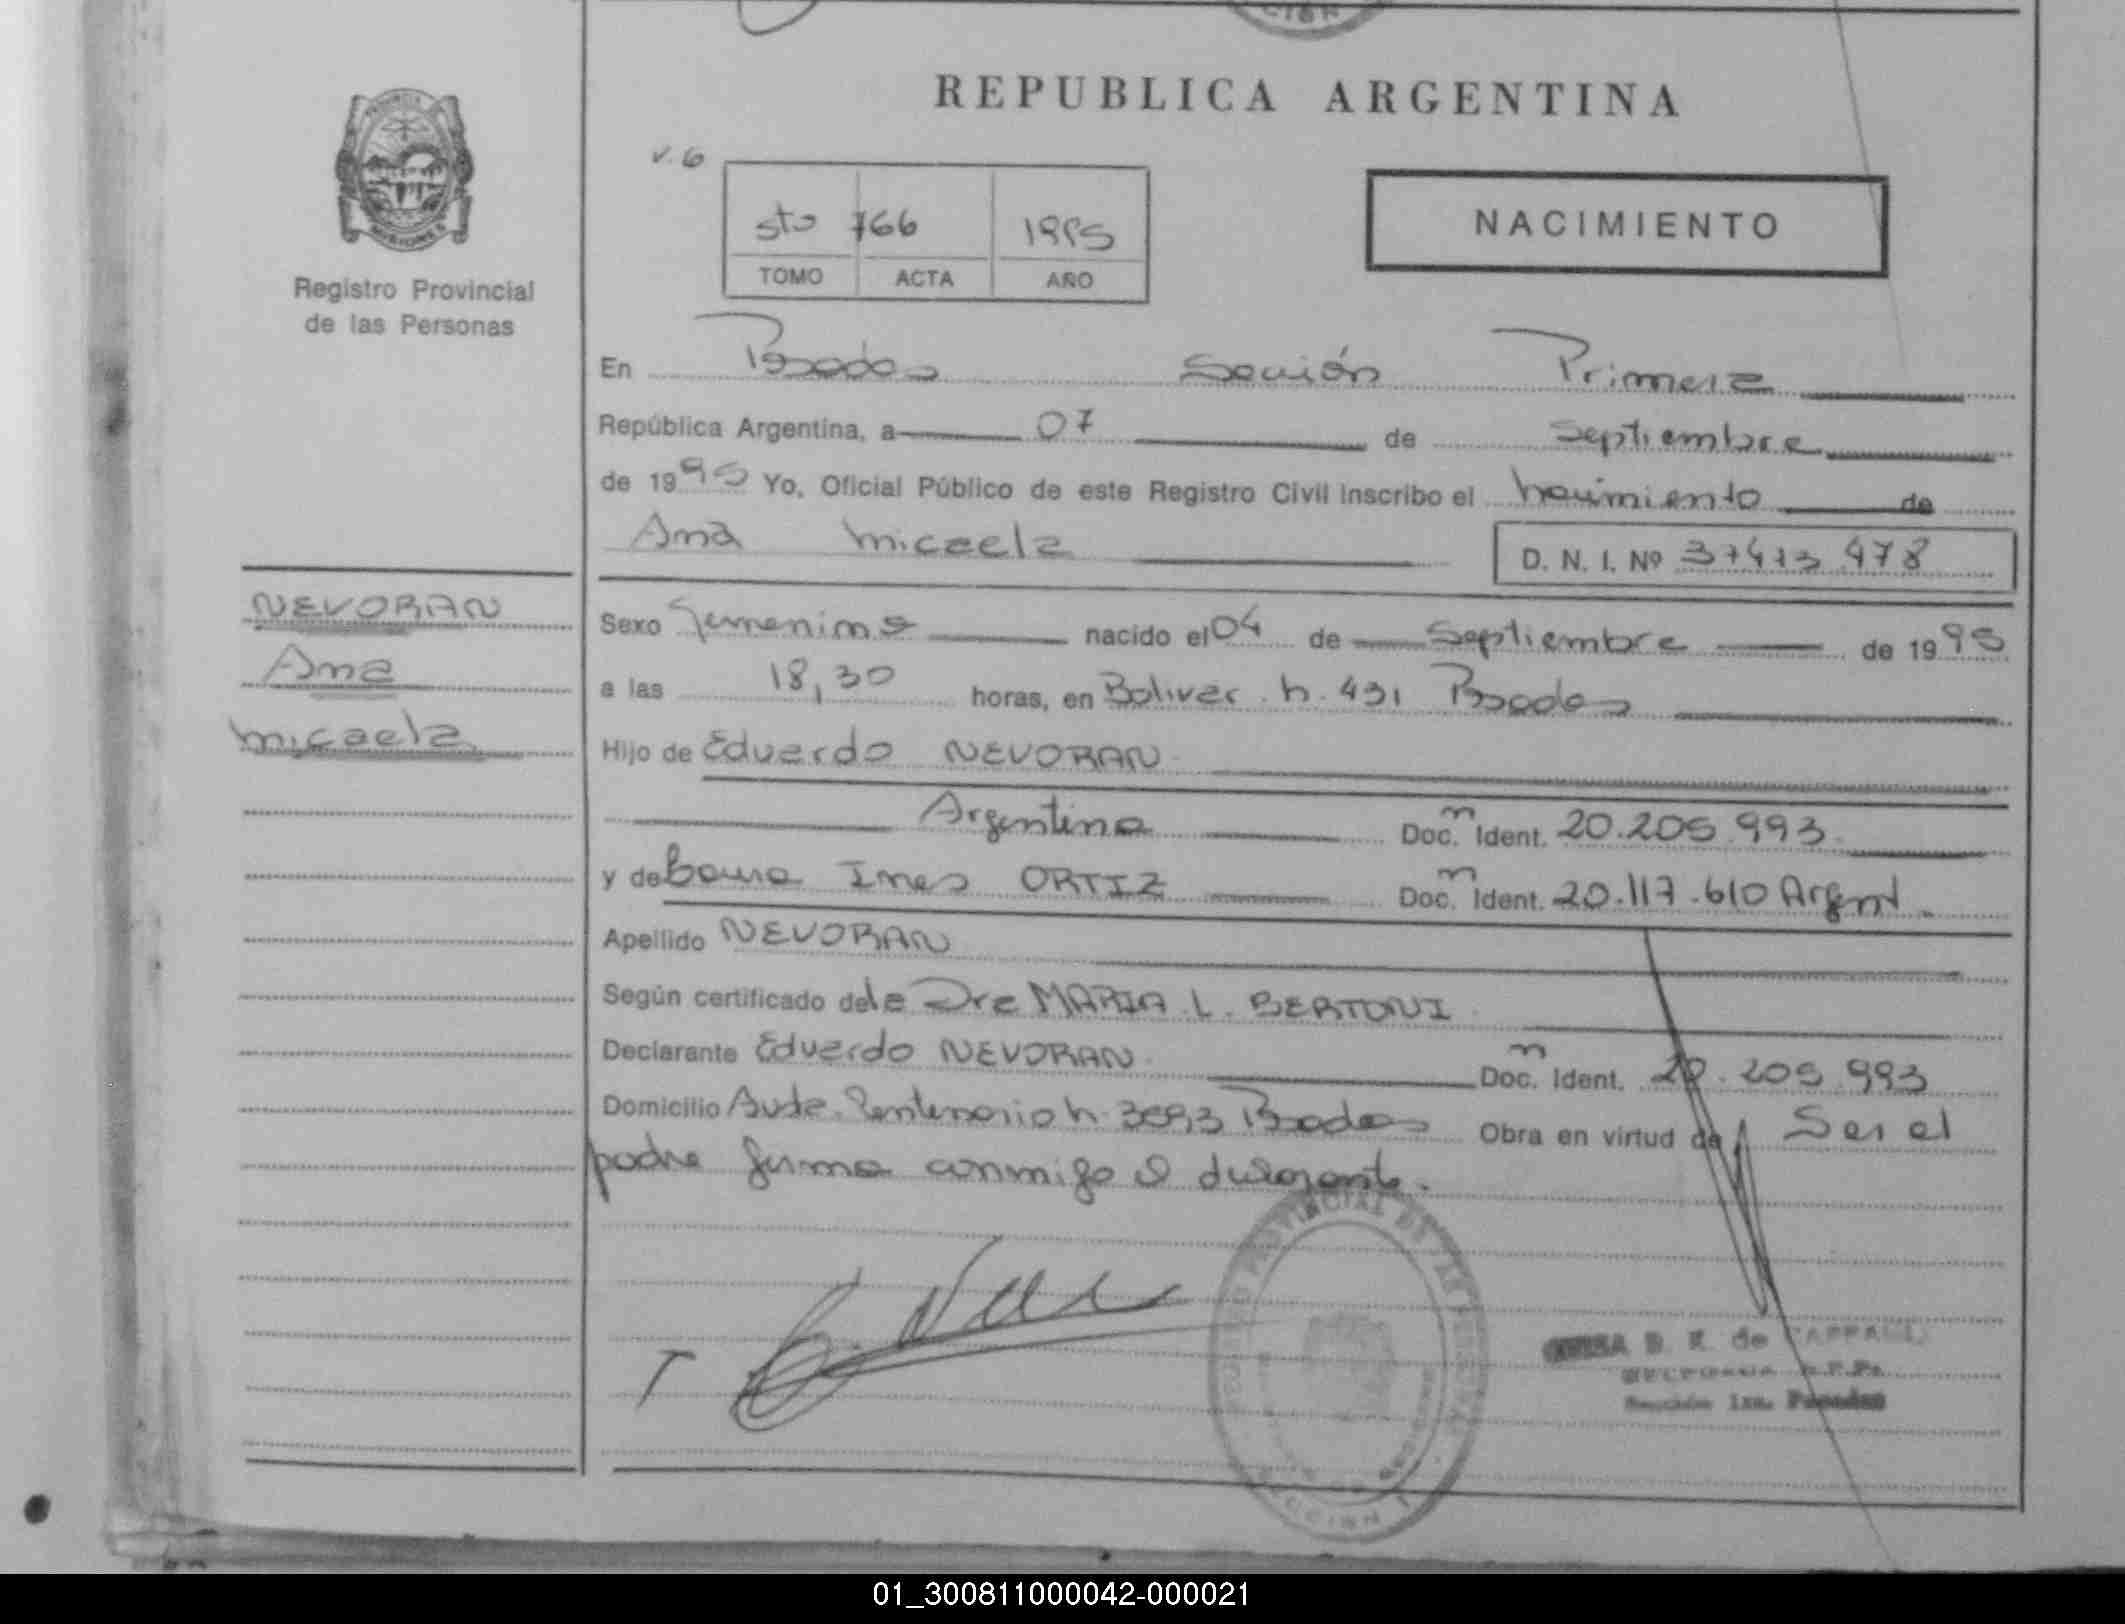 CION
REPUBLICA ARGENTINA
v. 6
5to 766 1995
TOMO ACTA AÑO
NACIMIENTO
PROVINCIA
MISIONES
Registro Provincial
de las Personas
En Posadas Sección Primera
República Argentina, a 07 de Septiembre
de 1995 Yo, Oficial Público de este Registro Civil inscribo el nacimiento de
Ana Micaela D. N. I. Nº 37473 478
NEVORAN
Ana
Micaela
Sexo Femenino nacido el 04 de Septiembre de 1995
a las 18,30 horas, en Bolivar n. 431 Posadas
Hijo de Eduardo NEVORAN
Argentino Doc. Ident. 20.205.993
y de Ines ORTIZ Doc. Ident. 20.117.610 Argent.
Apellido NEVORAN
Según certificado de la Dra MARIA L. BERTONI
Declarante Eduardo NEVORAN Doc. Ident. 20.205.993
Domicilio Avda. Centenario n. 3693 Posadas Obra en virtud de Ser el
padre firma conmigo el declarante.
REGISTRO PROVINCIAL DE LAS PERSONAS
SECCION 1
B. K. de
Sección 1ra. Posadas
01_300811000042-000021